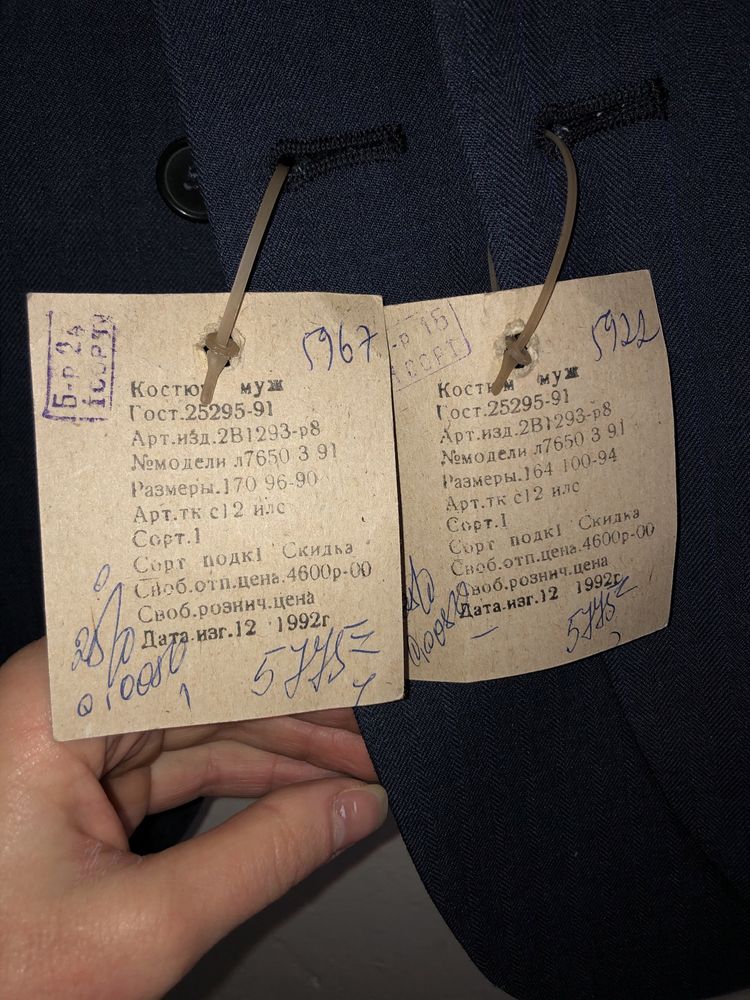 Б-р 24
1 СОРТ
5967
Костюм муж
Гост.25295-91
Арт.изд.2В1293-р8
№модели л7650 3 91
Размеры.170 96-90
Арт.тк с12 илс
Сорт.1
Сорт подк1 Скидка
Своб.отп.цена.4600р-00
Своб.рознич.цена
Дата.изг.12 1992г
25%
5775=
-р 16
1 СОРТ
5922
Костюм муж
Гост.25295-91
Арт.изд.2В1293-р8
№модели л7650 3 91
Размеры.164 100-94
Арт.тк с12 илс
Сорт.1
Сорт подк1 Скидка
Своб.отп.цена.4600р-00
Своб.рознич.цена
Дата.изг.12 1992г
5775=